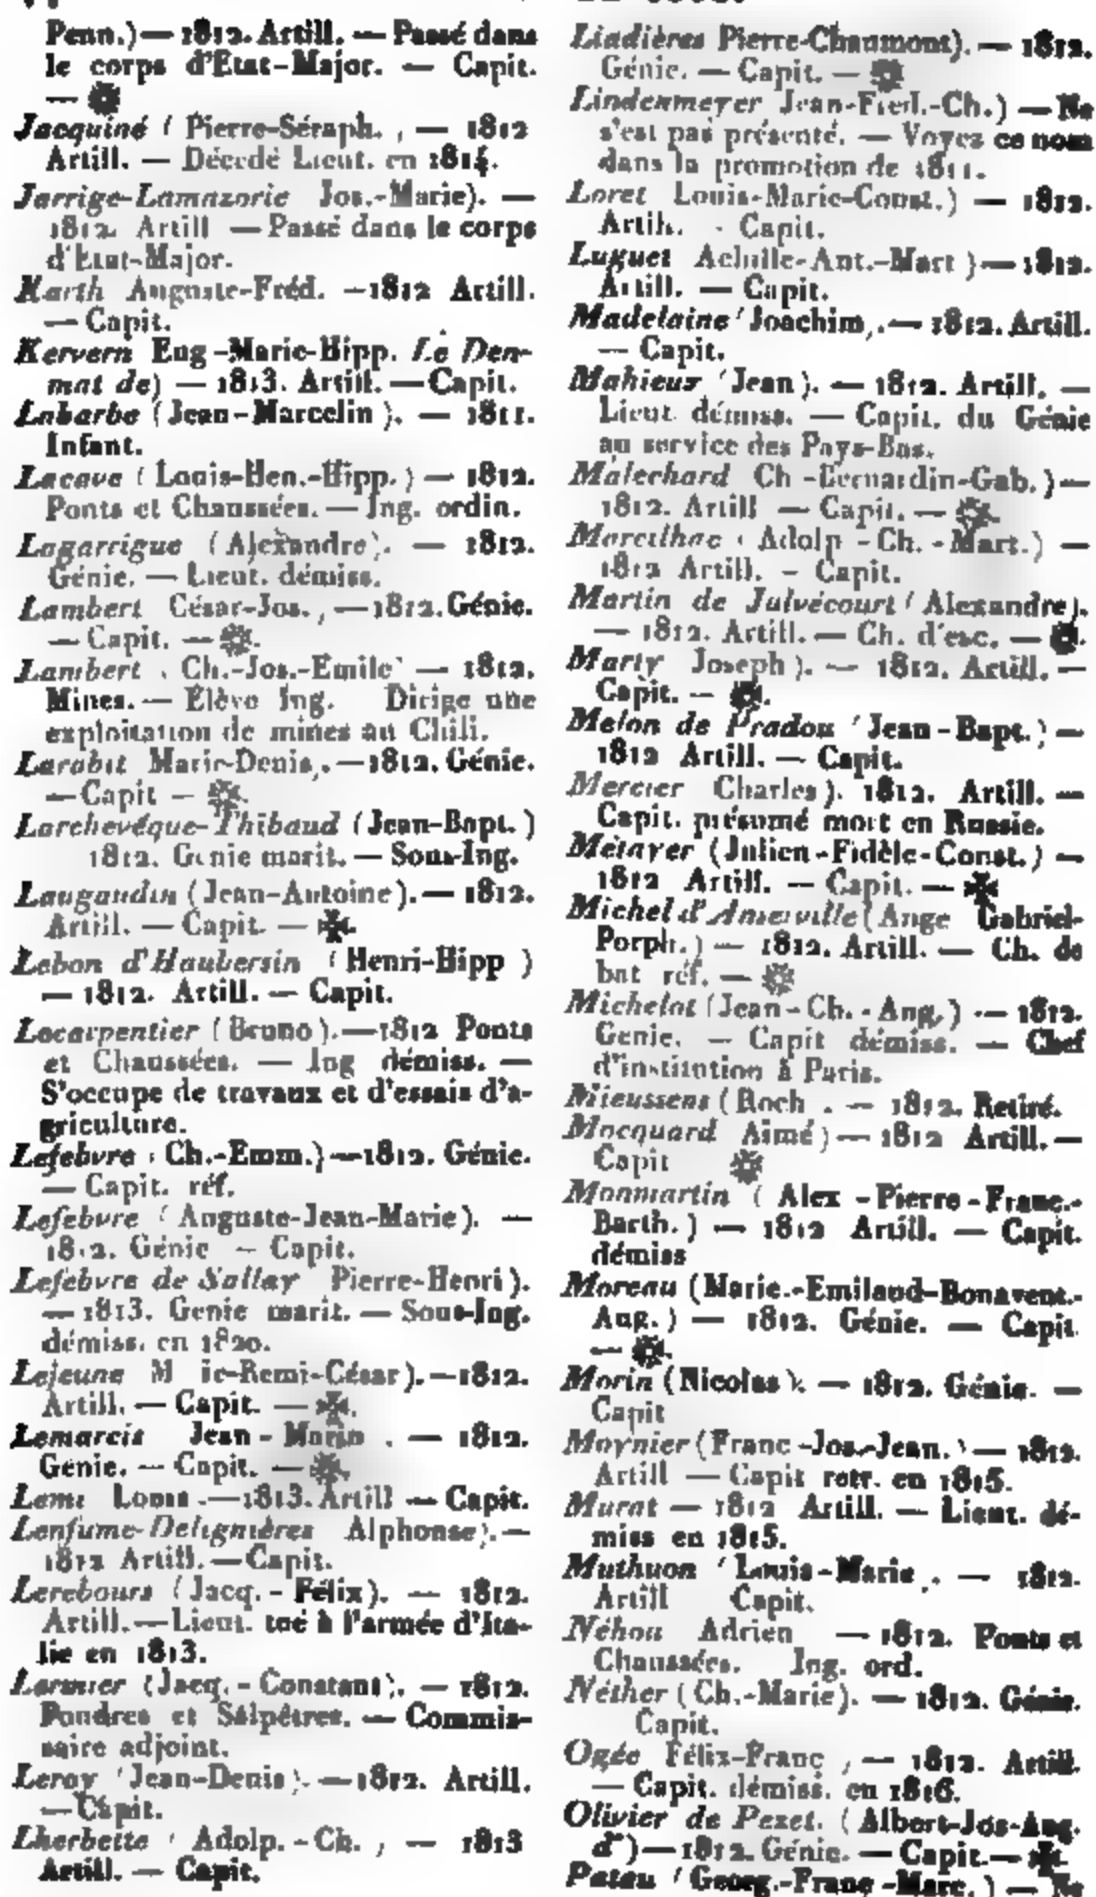 Penn.) — 1812. Artill. — Passé dans
le corps d'Etat-Major. — Capit.
— ✸
Jacquiné (Pierre-Séraph.) — 1812
Artill. — Décédé Lieut. en 1814.
Jarrige-Lamazorie Jos.-Marie). —
1812. Artill — Passé dans le corps
d'Etat-Major.
Karth Auguste-Fréd. — 1812 Artill.
— Capit.
Kervern Eug-Marie-Hipp. Le Den-
mat de) — 1813. Artill. — Capit.
Labarbe (Jean-Marcelin). — 1811.
Infant.
Lacave (Louis-Hen.-Hipp.) — 1812.
Ponts et Chaussées. — Ing. ordin.
Lagarrigue (Alexandre). — 1812.
Génie. — Lieut. démiss.
Lambert César-Jos., — 1812. Génie.
— Capit. — ✸.
Lambert Ch.-Jos.-Emile — 1812.
Mines. — Elève Ing. Dirige une
exploitation de mines au Chili.
Larabit Marie-Denis,. — 1812. Génie.
— Capit — ✸.
Larchevêque-Thibaud (Jean-Bapt.)
1812. Génie marit. — Sous-Ing.
Laugaudin (Jean-Antoine). — 1812.
Artill. — Capit. — ✸.
Lebon d'Haubersin (Henri-Hipp)
— 1812. Artill. — Capit.
Lecarpentier (Bruno). — 1812 Ponts
et Chaussées. — Ing démiss. —
S'occupe de travaux et d'essais d'a-
griculture.
Lefebvre Ch.-Emm.) — 1812. Génie.
— Capit. réf.
Lefebvre (Auguste-Jean-Marie). —
1812. Génie — Capit.
Lefebvre de Sallay Pierre-Henri).
— 1813. Genie marit. — Sous-Ing.
démiss. en 1820.
Lejeune M ie-Remi-César). — 1812.
Artill. — Capit. — ✸.
Lemarcis Jean-Marin . — 1812.
Genie. — Capit. — ✸.
Lemi Louis . — 1813. Artill — Capit.
Lenfume-Delignières Alphonse). —
1812 Artill. — Capit.
Lerebours (Jacq.-Félix). — 1812.
Artill. — Lieut. tué à l'armée d'Ita-
lie en 1813.
Lermier (Jacq.-Constant). — 1812.
Poudres et Salpêtres. — Commis-
saire adjoint.
Leroy (Jean-Denis). — 1812. Artill.
— Capit.
Lherbette Adolp.-Ch., — 1813
Artill. — Capit.
Liadières Pierre-Chaumont). — 1812.
Génie. — Capit. — ✸
Lindenmeyer Jean-Fred.-Ch.) — Ne
s'est pas présenté. — Voyez ce nom
dans la promotion de 1811.
Loret Louis-Marie-Const.) — 1812.
Artill. - Capit.
Luguet Achille-Ant.-Mart) — 1812.
Artill. — Capit.
Madelaine (Joachim,. — 1812. Artill.
— Capit.
Mahieux (Jean). — 1812. Artill. —
Lieut démiss. — Capit. du Génie
au service des Pays-Bas.
Malechard Ch-Bernardin-Gab.) —
1812. Artill — Capit. — ✸.
Marcilhac Adolp-Ch.-Mart.) —
1812 Artill. — Capit.
Martin de Julvécourt (Alexandre).
— 1812. Artill. — Ch. d'esc. — ✸.
Marty Joseph). — 1812. Artill. —
Capit. — ✸.
Melon de Pradou (Jean-Bapt.) —
1812 Artill. — Capit.
Mercier Charles). 1812. Artill. —
Capit. présumé mort en Russie.
Métayer (Julien-Fidèle-Const.) —
1812 Artill. — Capit. — ✸
Michel d'Amerville (Ange Gabriel-
Porph.) — 1812. Artill. — Ch. de
bat réf. — ✸
Michelot (Jean-Ch.-Aug.) — 1812.
Genie. — Capit démiss. — Chef
d'institution à Paris.
Mieussens (Roch . — 1812. Retiré.
Mocquard Aimé) — 1812 Artill. —
Capit ✸
Monmartin (Alex-Pierre-Franç.-
Barth.) — 1812 Artill. — Capit.
démiss
Moreau (Marie.-Emiland-Bonavent.-
Aug.) — 1812. Génie. — Capit
— ✸.
Morin (Nicolas). — 1812. Génie. —
Capit
Moynier (Franc-Jos.-Jean.) — 1812.
Artill — Capit retr. en 1815.
Murat — 1812 Artill. — Lieut. dé-
miss en 1815.
Muthuon (Louis-Marie,. — 1812.
Artill Capit.
Néhou Adrien — 1812. Ponts et
Chaussées. Ing. ord.
Néther (Ch.-Marie). — 1812. Génie.
Capit.
Ogée Félix-Franç, — 1812. Artill.
— Capit. démiss. en 1816.
Olivier de Pezet. (Albert-Jos-Aug.
d') — 1812. Génie. — Capit. — ✸.
Patau (Georg.-Franç-Marc.) — Ne